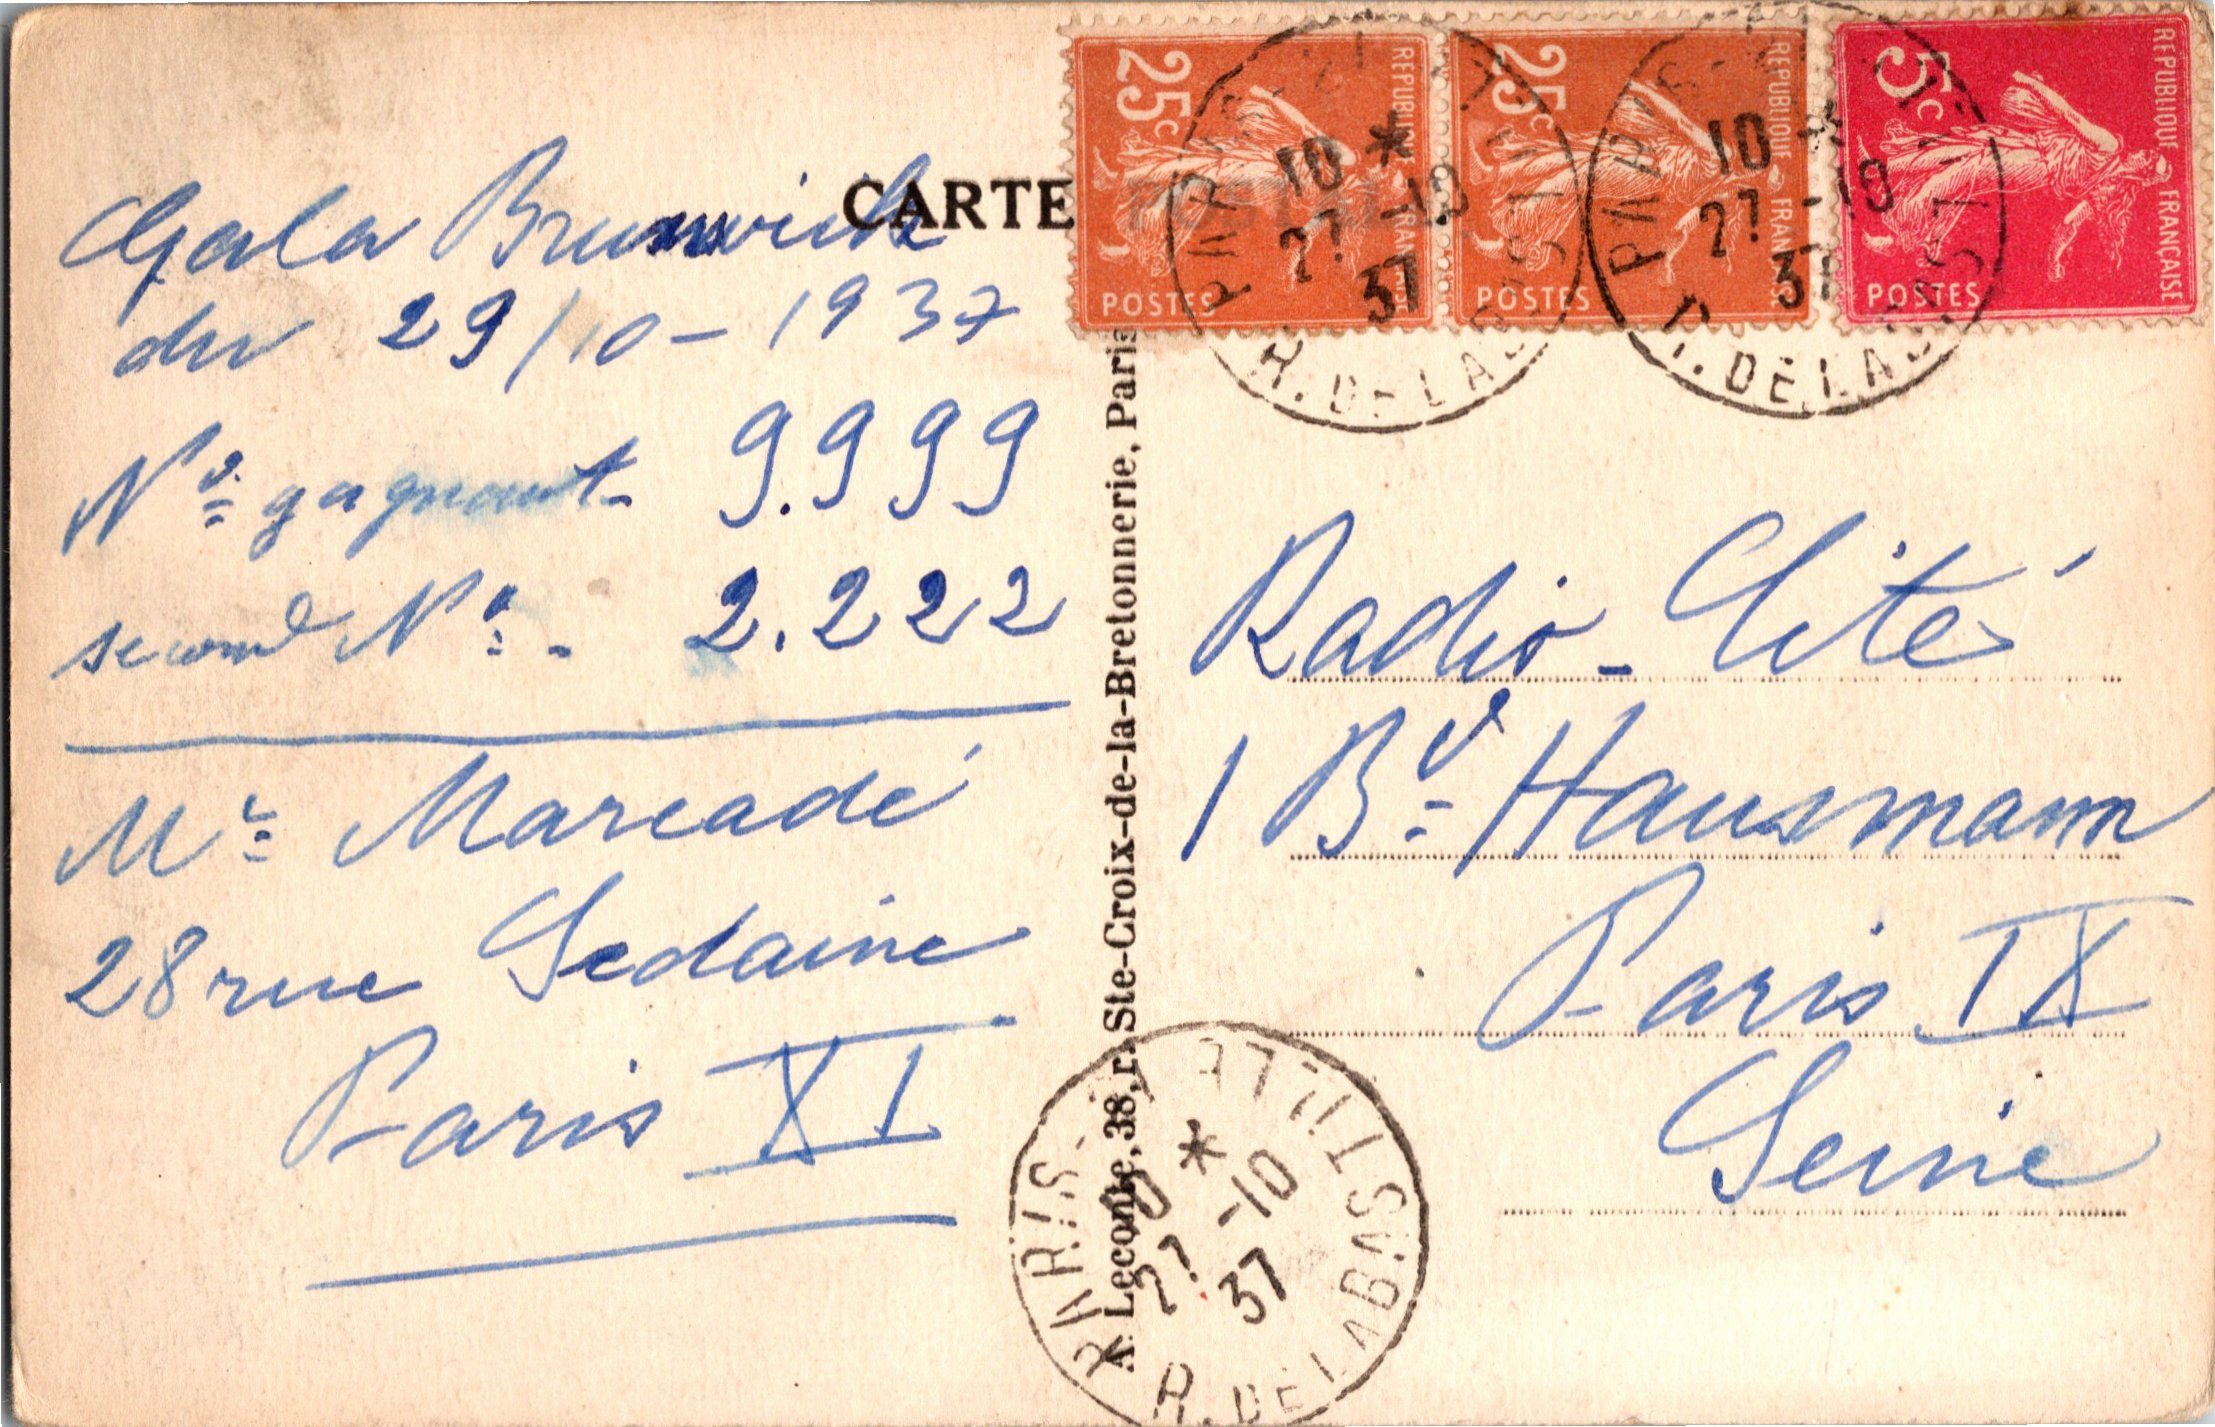 CARTE POSTALE
Gala Brunswick
du 29/10-1937
N° gagnant - 9.999
second N° - 2.222
Mr Marcadé
28 rue Sedaine
Paris XI
A. Leconte, 38, r. Ste-Croix-de-la-Bretonnerie, Paris
REPUBLIQUE FRANÇAISE
25c
POSTES
REPUBLIQUE FRANÇAISE
25c
POSTES
REPUBLIQUE FRANÇAISE
5c
POSTES
10 *
27 -10
37
R. DE LA BASTILLE
PARIS
10 *
27 -10
37
R. DE LA BASTILLE
Radio-Cité
1 Bd Hausmann
Paris IX
Seine
PARIS
* -10
27 37
R. DE LA BASTILLE